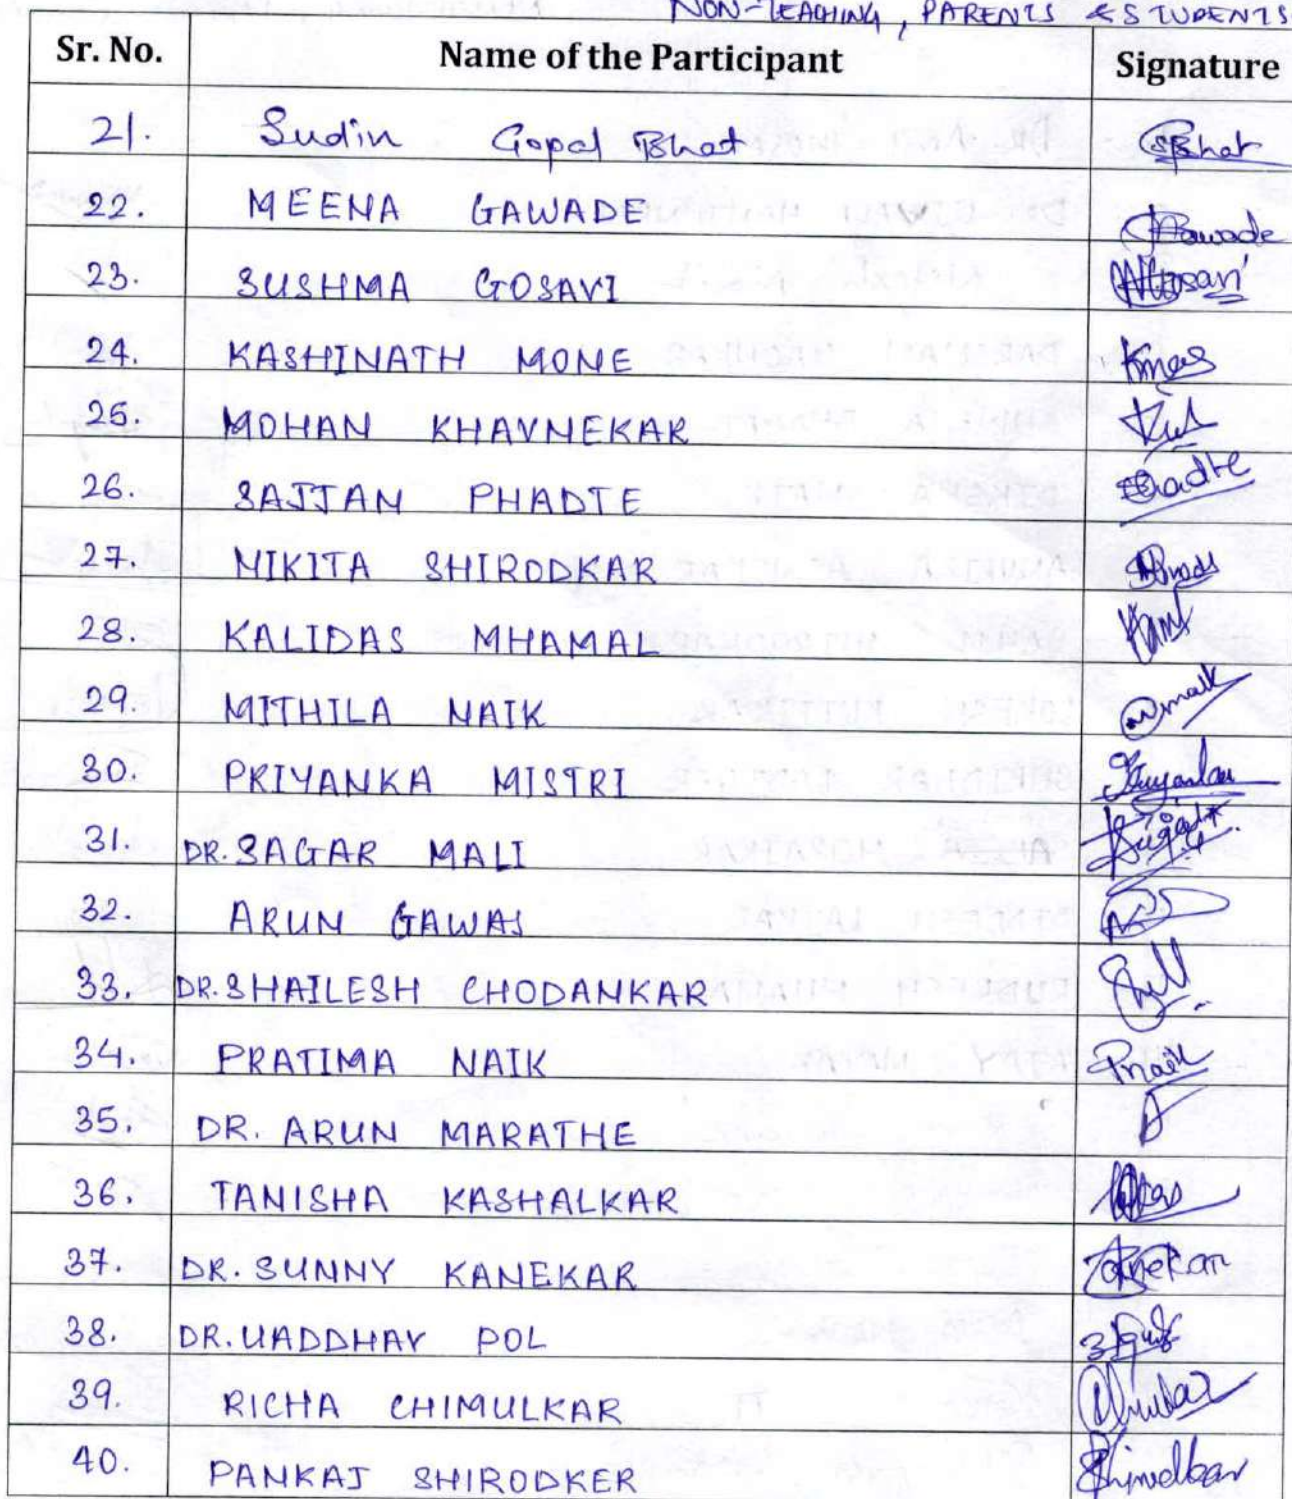 NON-TEACHING, PARENTS & STUDENTS
Sr. No. Name of the Participant Signature
21. Sudin Gopal Bhat SBhat
22. MEENA GAWADE Gawade
23. SUSHMA GOSAVI Gosavi
24. KASHINATH MONE
25. MOHAN KHAVNEKAR
26. SAJJAN PHADTE Phadte
27. NIKITA SHIRODKAR
28. KALIDAS MHAMAL
29. MITHILA NAIK
30. PRIYANKA MISTRI
31. DR. SAGAR MALI
32. ARUN GAWAS
33. DR. SHAILESH CHODANKAR
34. PRATIMA NAIK Pnaik
35. DR. ARUN MARATHE
36. TANISHA KASHALKAR
37. DR. SUNNY KANEKAR Kanekar
38. DR. UADDHAV POL
39. RICHA CHIMULKAR
40. PANKAJ SHIRODKER